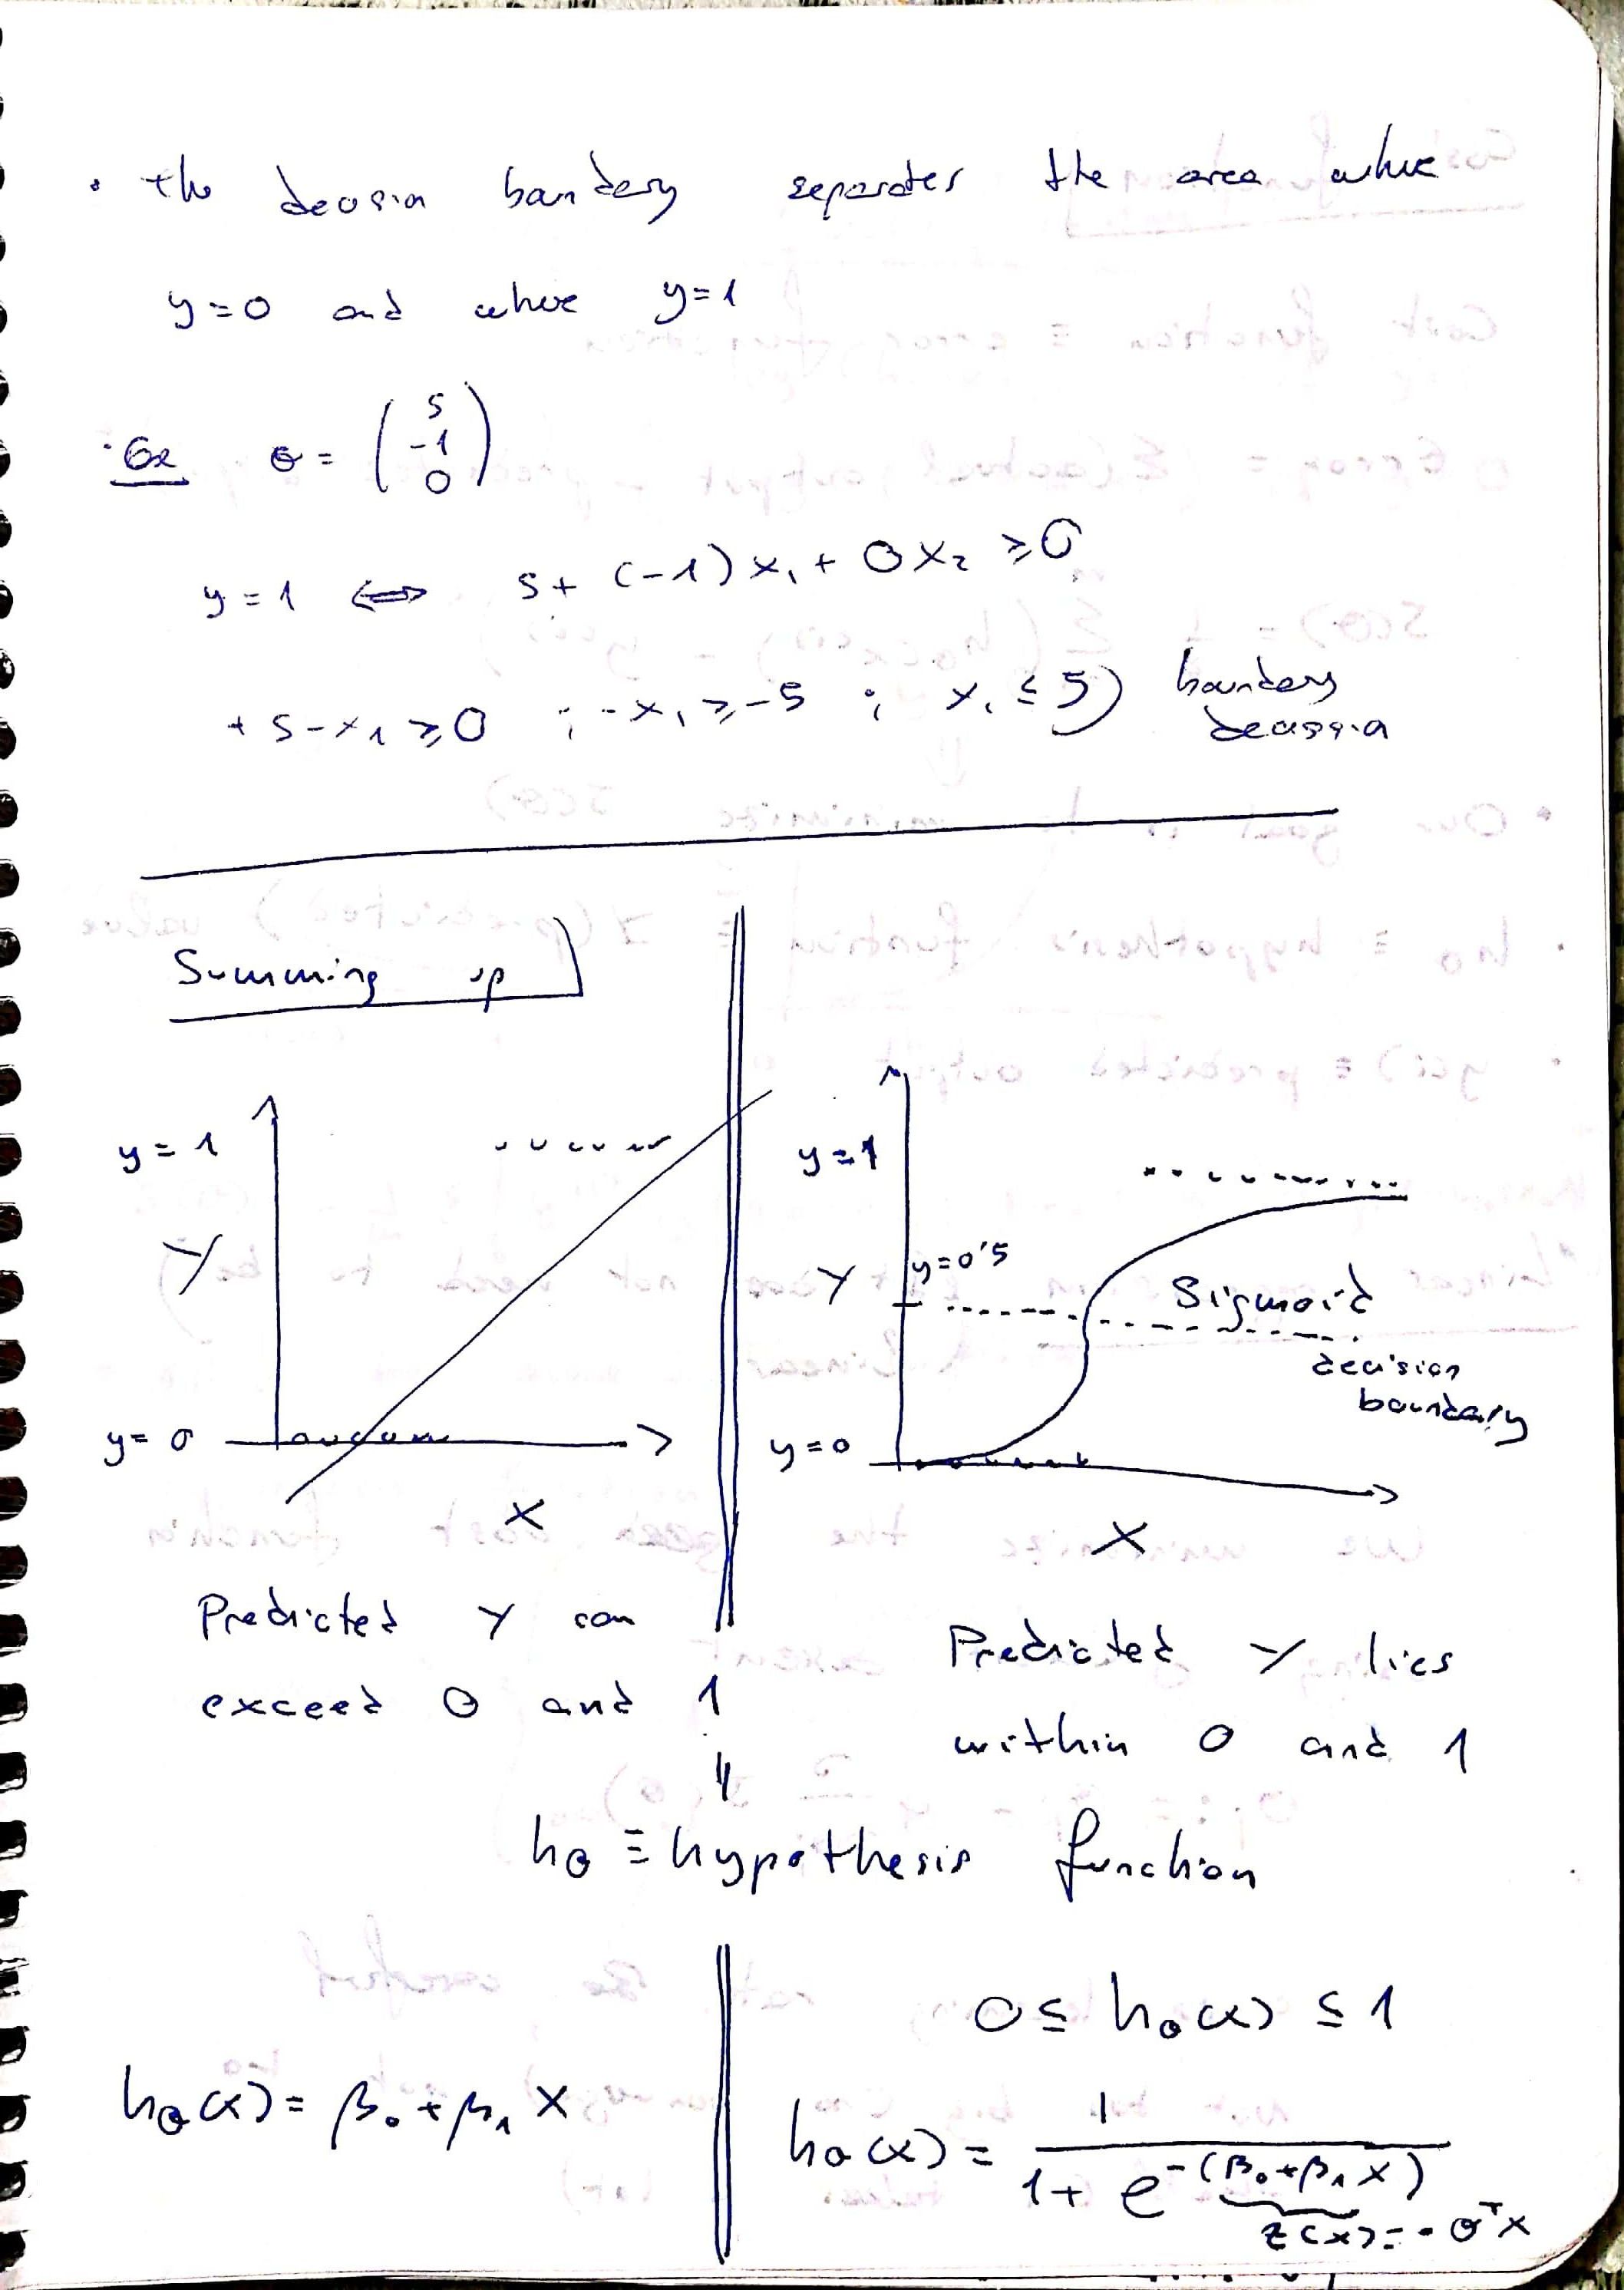 • the decision boundary separates the area where
y=0 and where y=1
• Ex θ = (5 -1 0)
y=1 ⟺ 5+ (-1)x₁+ 0x₂ ≥0
+ 5-x₁ ≥0 ; -x₁ ≥-5 ; x₁ ≤ 5) boundary
decission
Summing up
y=1
Y
y=0
X
Predicted Y can
exceed 0 and 1
y=1
y=0'5
Y
Sigmoid
decision
boundary
y=0
X
Predicted Y lies
within 0 and 1
hθ ≡ hypothesis function
hθ(x) = β₀+β₁ X
0 ≤ hθ(x) ≤ 1
hθ(x) = 1 / 1+ e^-(β₀+β₁ X)
z(x)=- θᵀx